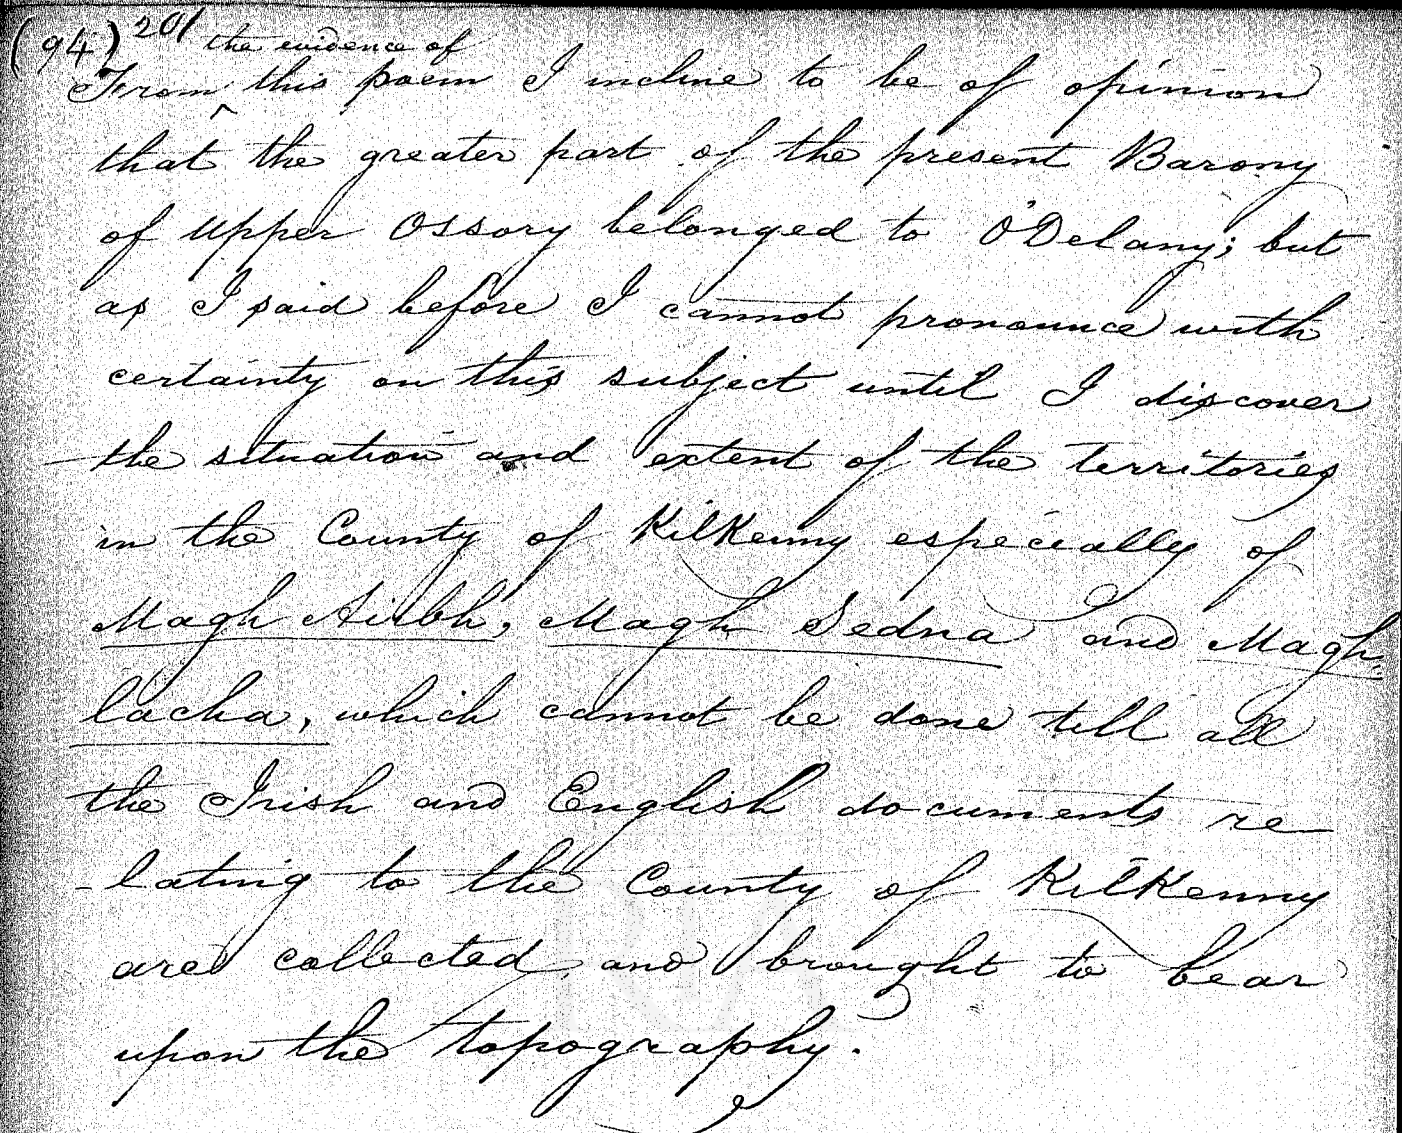 (94) 201
the evidence of
From ^ this poem I incline to be of opinion
that the greater part of the present Barony
of Upper Ossory belonged to O'Delany; but
as I said before I cannot pronounce with
certainty on this subject until I discover
the situation and extent of the territories
in the County of Kilkenny especially of
Magh Airbh, Magh Sedna and Magh-
lacha, which cannot be done till all
the Irish and English documents re
-lating to the County of Kilkenny
are collected and brought to bear
upon the topography.